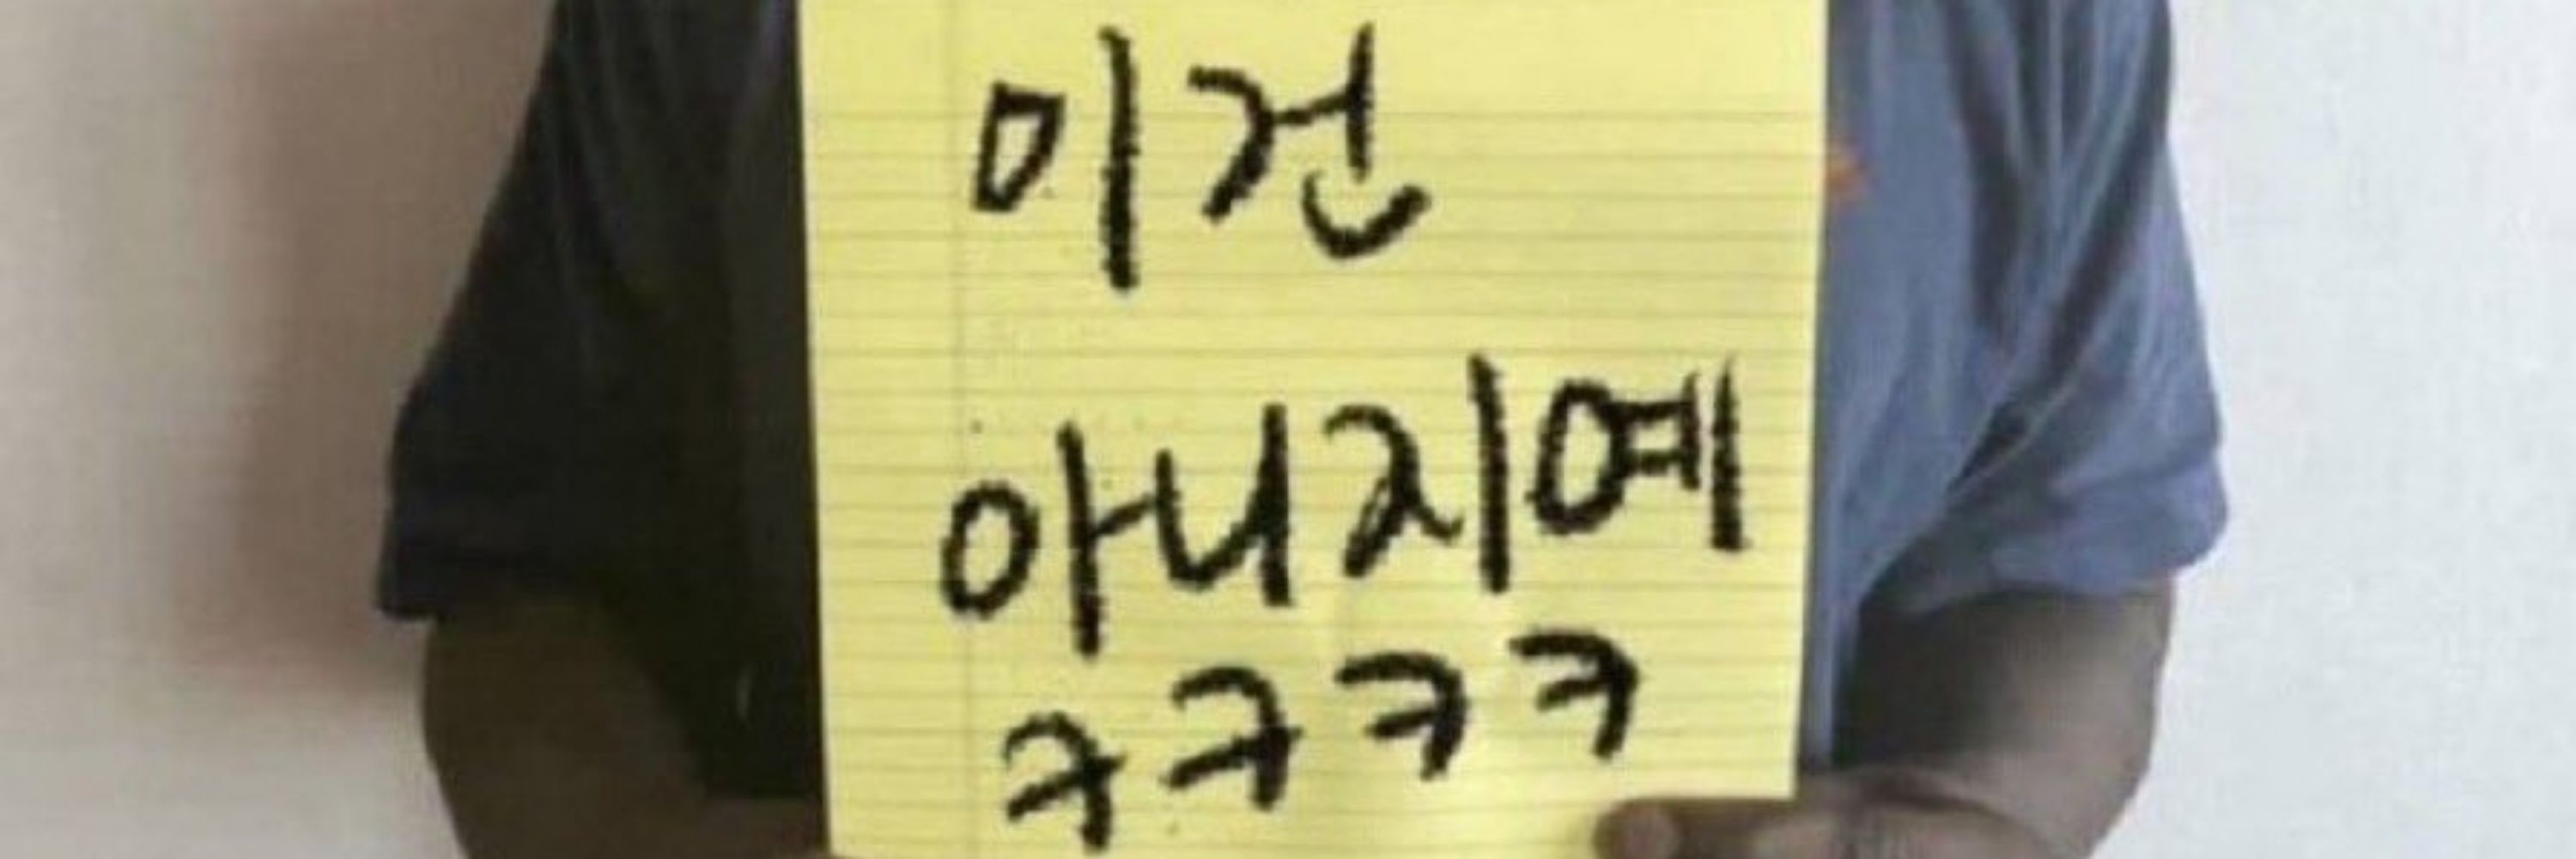 이건
아니지예
ㅋㅋㅋㅋ